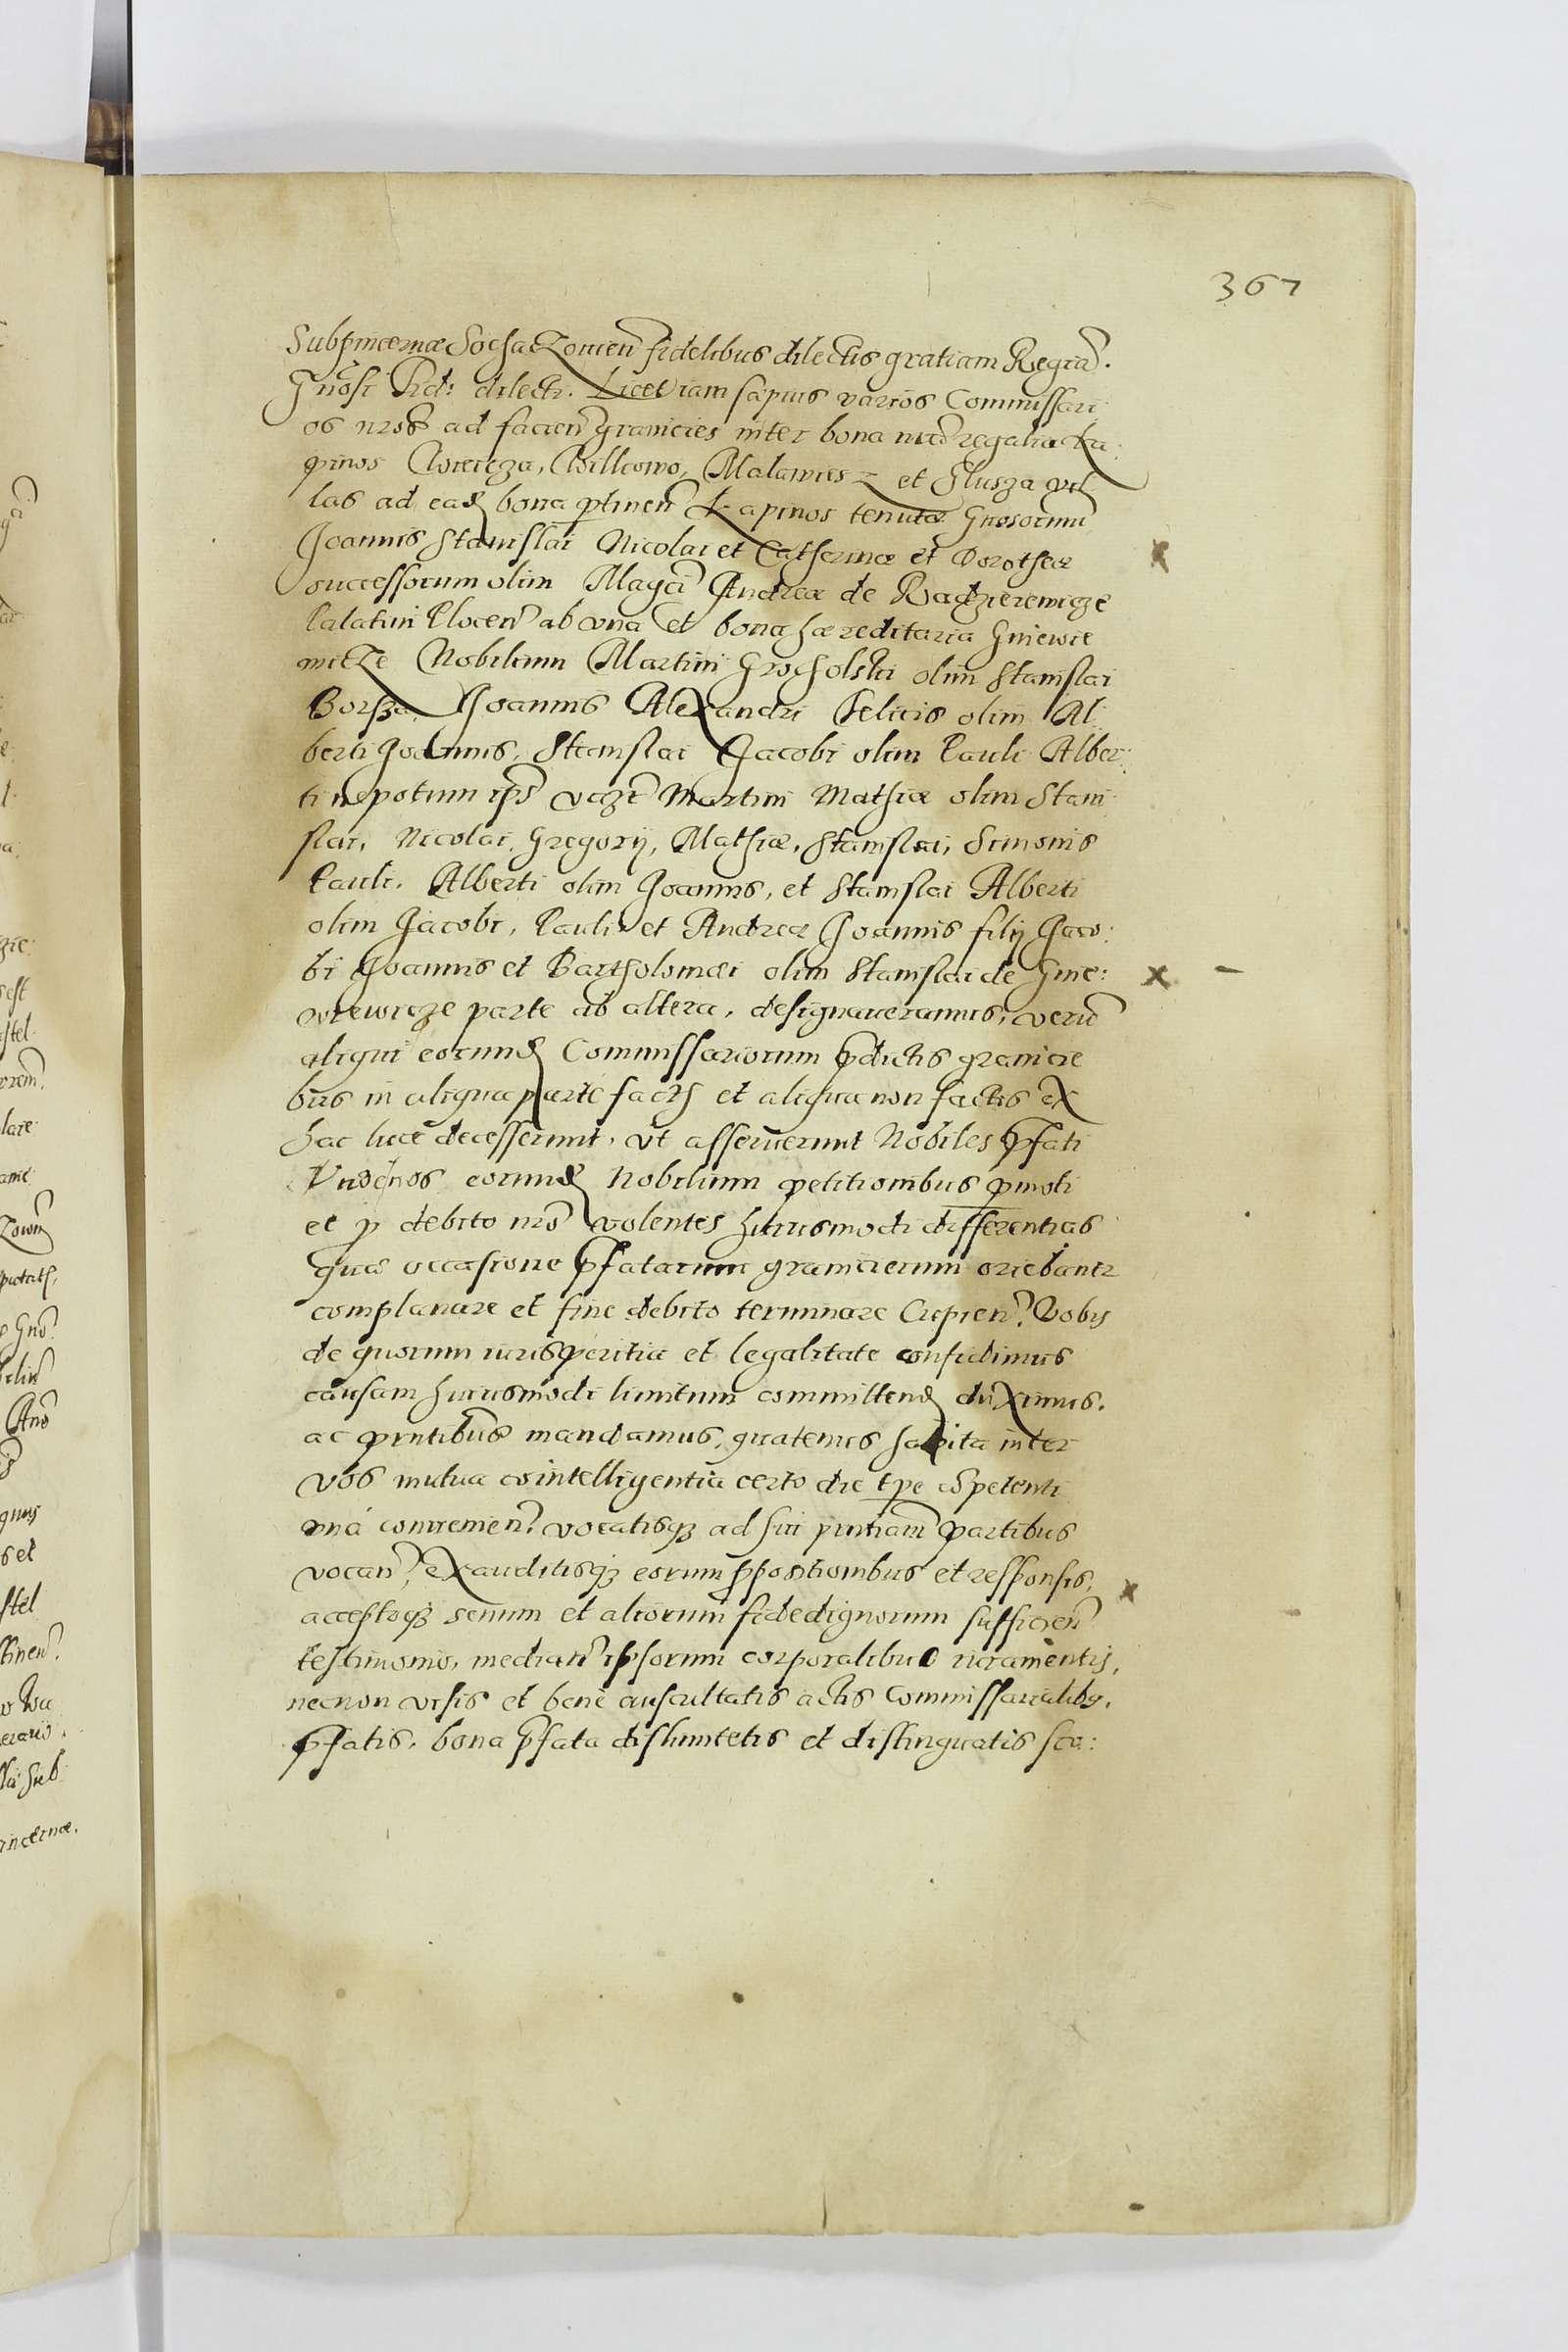 367
Subpincernæ Sochaczouien̄ fidelibus dilectis gratiam Regiā.
Gnosi Fid: dilecti. Licet iam sæpius varios Commissari
os nrōs ad facien̄ granicies inter bona nrā regalia Ła:
pinos Cwieicza, Willcowo, Malawies et Glusza vil
las ad eadē bona ptinen̄ Łapinos tenutæ Gnosorum
Joannis Stanislai Nicolai et Catherinæ et Dorotheæ
successorum olim Magci Andreæ de Radzieiewicze
Palatini Plocen̄ ab vna et bona hæreditaria Gniewie
wicze Nobilium Martini Grocholski olim Stanislai
Borsza, Joannis Alexandri Felicis olim Al
berti Joannis, Stanislai Jacobi olim Pauli Alber:
ti nepotum ips Martini Mathiæ olim Stani
slai, Nicolai, Gregorij, Mathiæ, Stanislai, Simonis
Pauli, Alberti olim Joannis, et Stanislai Alberti
olim Jacobi, Pauli et Andreæ Joannis filij Jaco:
bi Joannis et Bartholomæi olim Stanislai de Gnie:
wiewicze parte ab altera, designaueramus, verū
aliqui eorundē Commissariorum pdictis granicie
bus in aliqua parte factis et aliqua non factis ex
hac luce decesserunt, vt asseruerunt Nobiles pfati
Vndē nos eorundē Nobilium petitionibus pmoti
et p debito nrō volentes huiusmodi differentias
quæ occasione pfatarum granicierum oriebantr
complanare et fine debito terminare Cupien̄. Vobis
de quorum iurisperitia et legalitate confidimus
causam huiusmodi limitum committendā duximus.
ac pntibus mandamus, quatenus habita inter
vos mutua cointelligentia certo die tpe cōpetenti
vna conuenien̄. vocatisq; ad sui pntiam partibus
vocan̄, exauditisq; eorum ppositionibus et responsis,
acceptoq; senum et aliorum fidedignorum sufficien̄
testimonio, median̄ ipsorum corporalibus iuramentis,
necnon visis et bene auscultatis actis Commissarialib9,
pfatis, bona pfata dislimitetis et distinguatis sca: